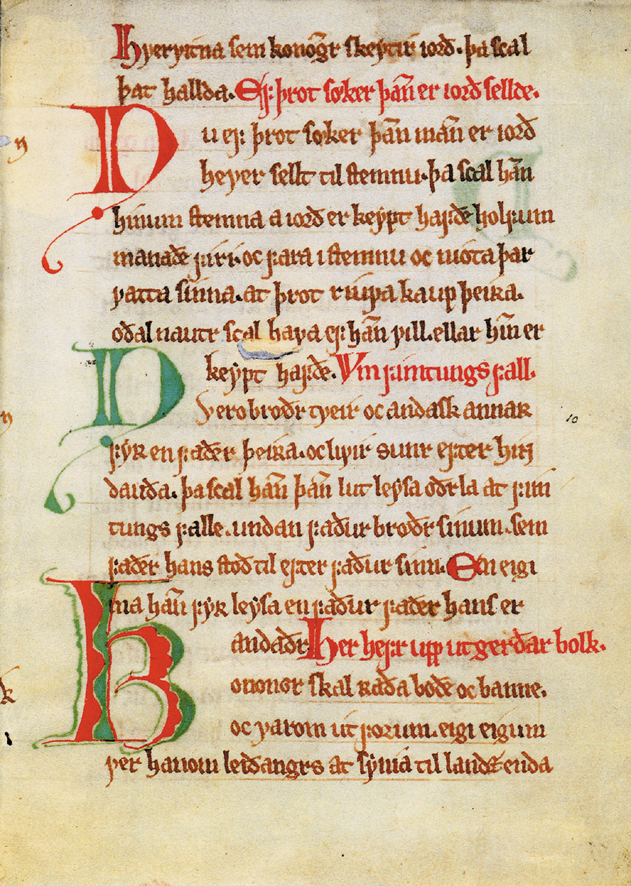 hvervitna sem konongr skeytir iorð. þa scal
þat hallda. Ef þrot søker þān er iorð sellde.
Nu ef þrot søker þān mān er iorð
hever sellt til stemnu. þa scal hān
hinum stemna a iorð er keypt hafðe holfum
manaðe firi. oc fara i stemnu oc niota þar
vatta sinna. at þrot riupa kaup þeiʀa.
oðalnautr scal hava ef hān vill. ellar hīn er
keypt hafðe. Vm fimtungs fall.
Nv ero brøðr tveir oc andask annaʀ
fyʀ en faðer þeiʀa. oc livir sunr efter hin
dauða. þa scal hān þān lut leysa oðrla at fim
tungs falle. undan faður brøðr sinum. sem
faðer hans stoð til efter faður sinn. En eigi
ma hān fyʀ leysa en faður faðer hans er
andaðr. Her hefr upp utgerðar bolk.
Kononor skal raða boðe oc banne.
oc varom utforum. eigi eigum
ver hanom leiðangrs at synia til landsenda